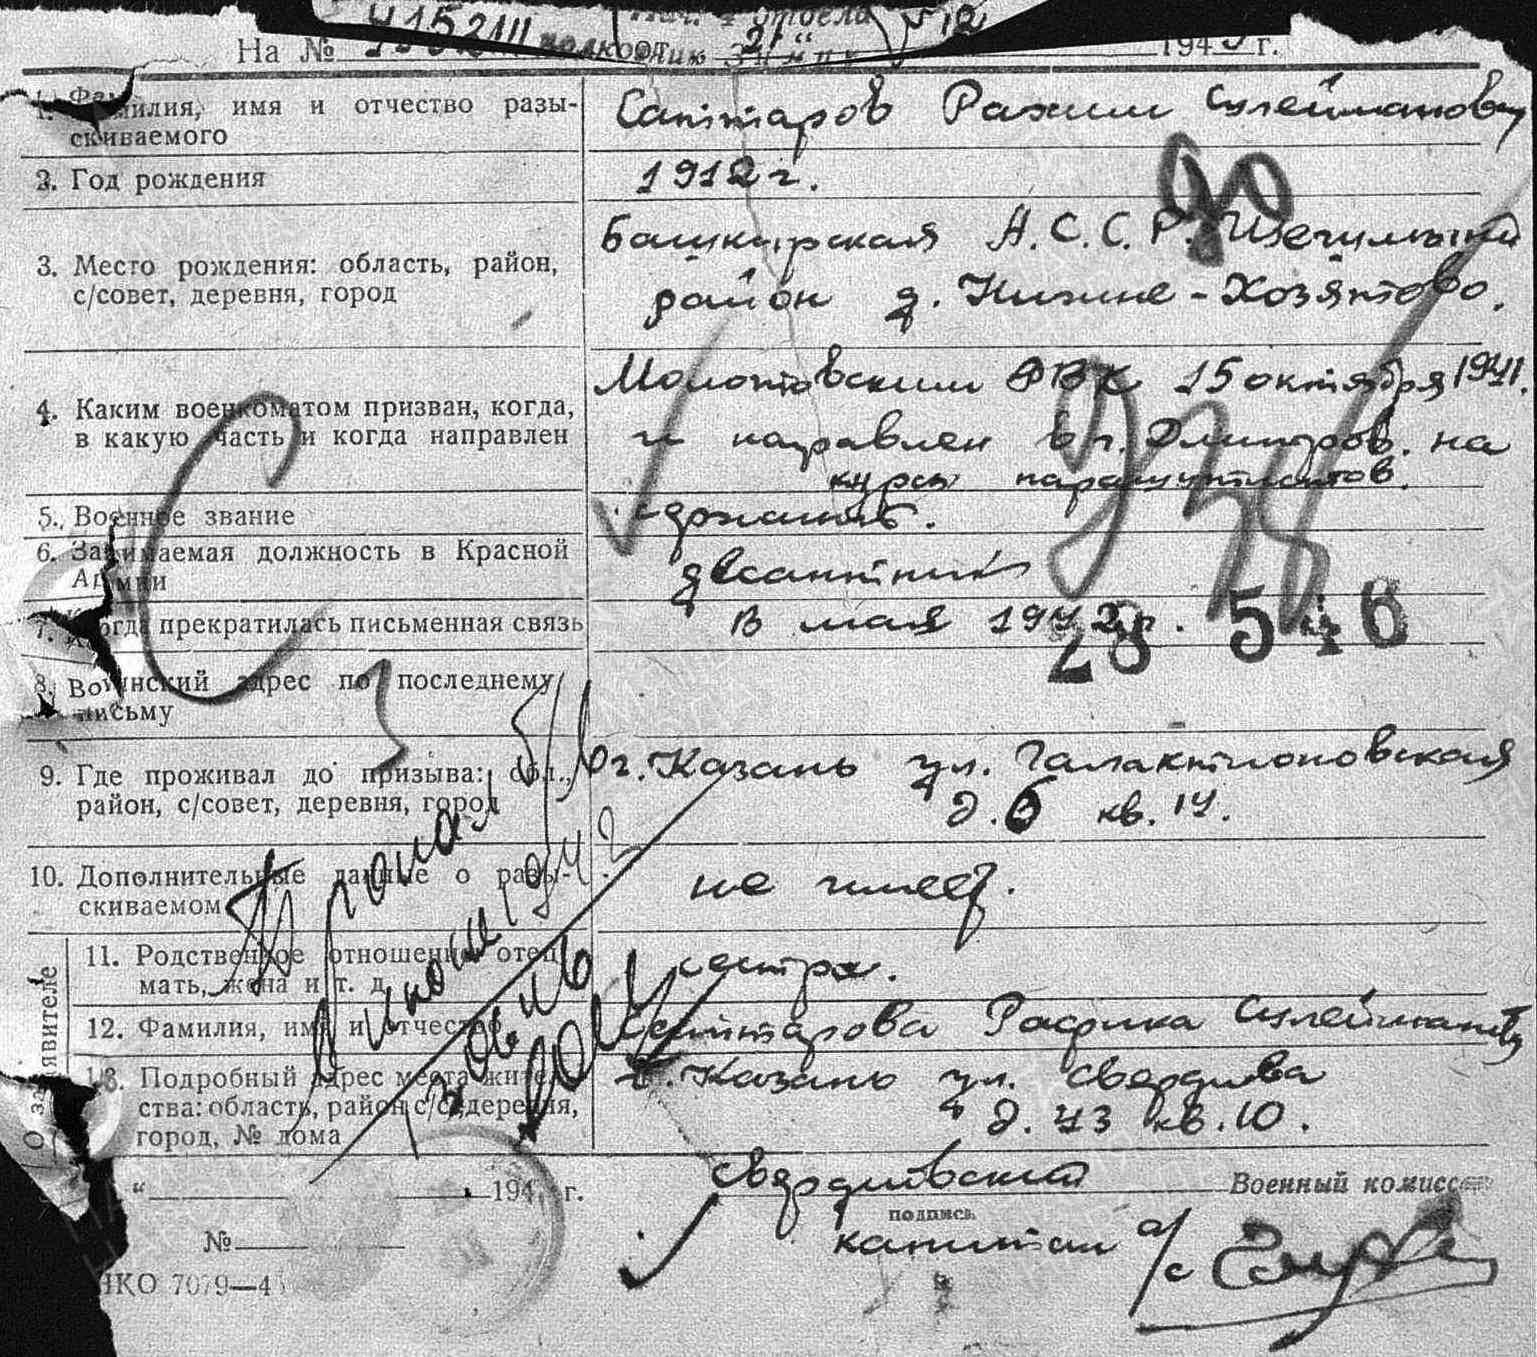 Нач. 4 отдела
415211
На № полковник 194 г.
1. Фамилия, имя и отчество разы-
скиваемого
Саттаров Рахим Сулейманович
2. Год рождения
1912 г.
90
3. Место рождения: область, район,
с/совет, деревня, город
Башкирская А.С.С.Р.
район д. Нижне-Хозятово.
4. Каким военкоматом призван, когда,
в какую часть и когда направлен
Молотовским РВК 15 октября 1941.
и направлен в г. Дмитров. на
курсы парашутистов.
938
5. Военное звание
сержант.
6. Занимаемая должность в Красной
Армии
десантник
7. Когда прекратилась письменная связь
В мая 1942 г.
28 546
8. Воинский адрес по последнему
письму
9. Где проживал до призыва: обл.,
район, с/совет, деревня, город
г. Казань ул. Галактионовская
д. 6 кв. 14.
10. Дополнительные данные о разы-
скиваемом
не имеет.
Пропал б/в
в июле 1942
О заявителе
11. Родственное отношение отец,
мать, жена и т. д.
сестра.
12. Фамилия, имя и отчество
Саттарова Рафика Сулеймановна
13. Подробный адрес места житель-
ства: область, район, с/с, деревня,
город, № дома
г. Казань ул. Свердлова
д. 43 кв. 10.
"
194 г.
Свердловский Военный комиссар
подпись
№
капитан а/с
НКО 7079—4